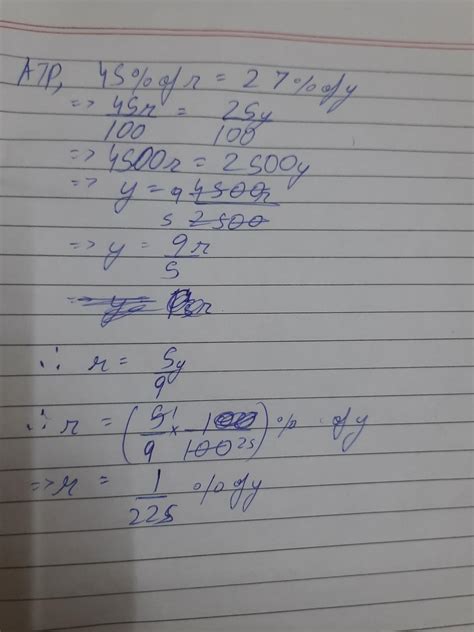 ATP, 45% of r = 27% of y
=> 45r/100 = 25y/100
=> 4500r = 2500y
=> y = 9 4500r / 5 2500
=> y = 9r/5
∴ r = 5y/9
∴ r = (5 1/9 × 100/100 25)% of y
=> r = 1/225 % of y